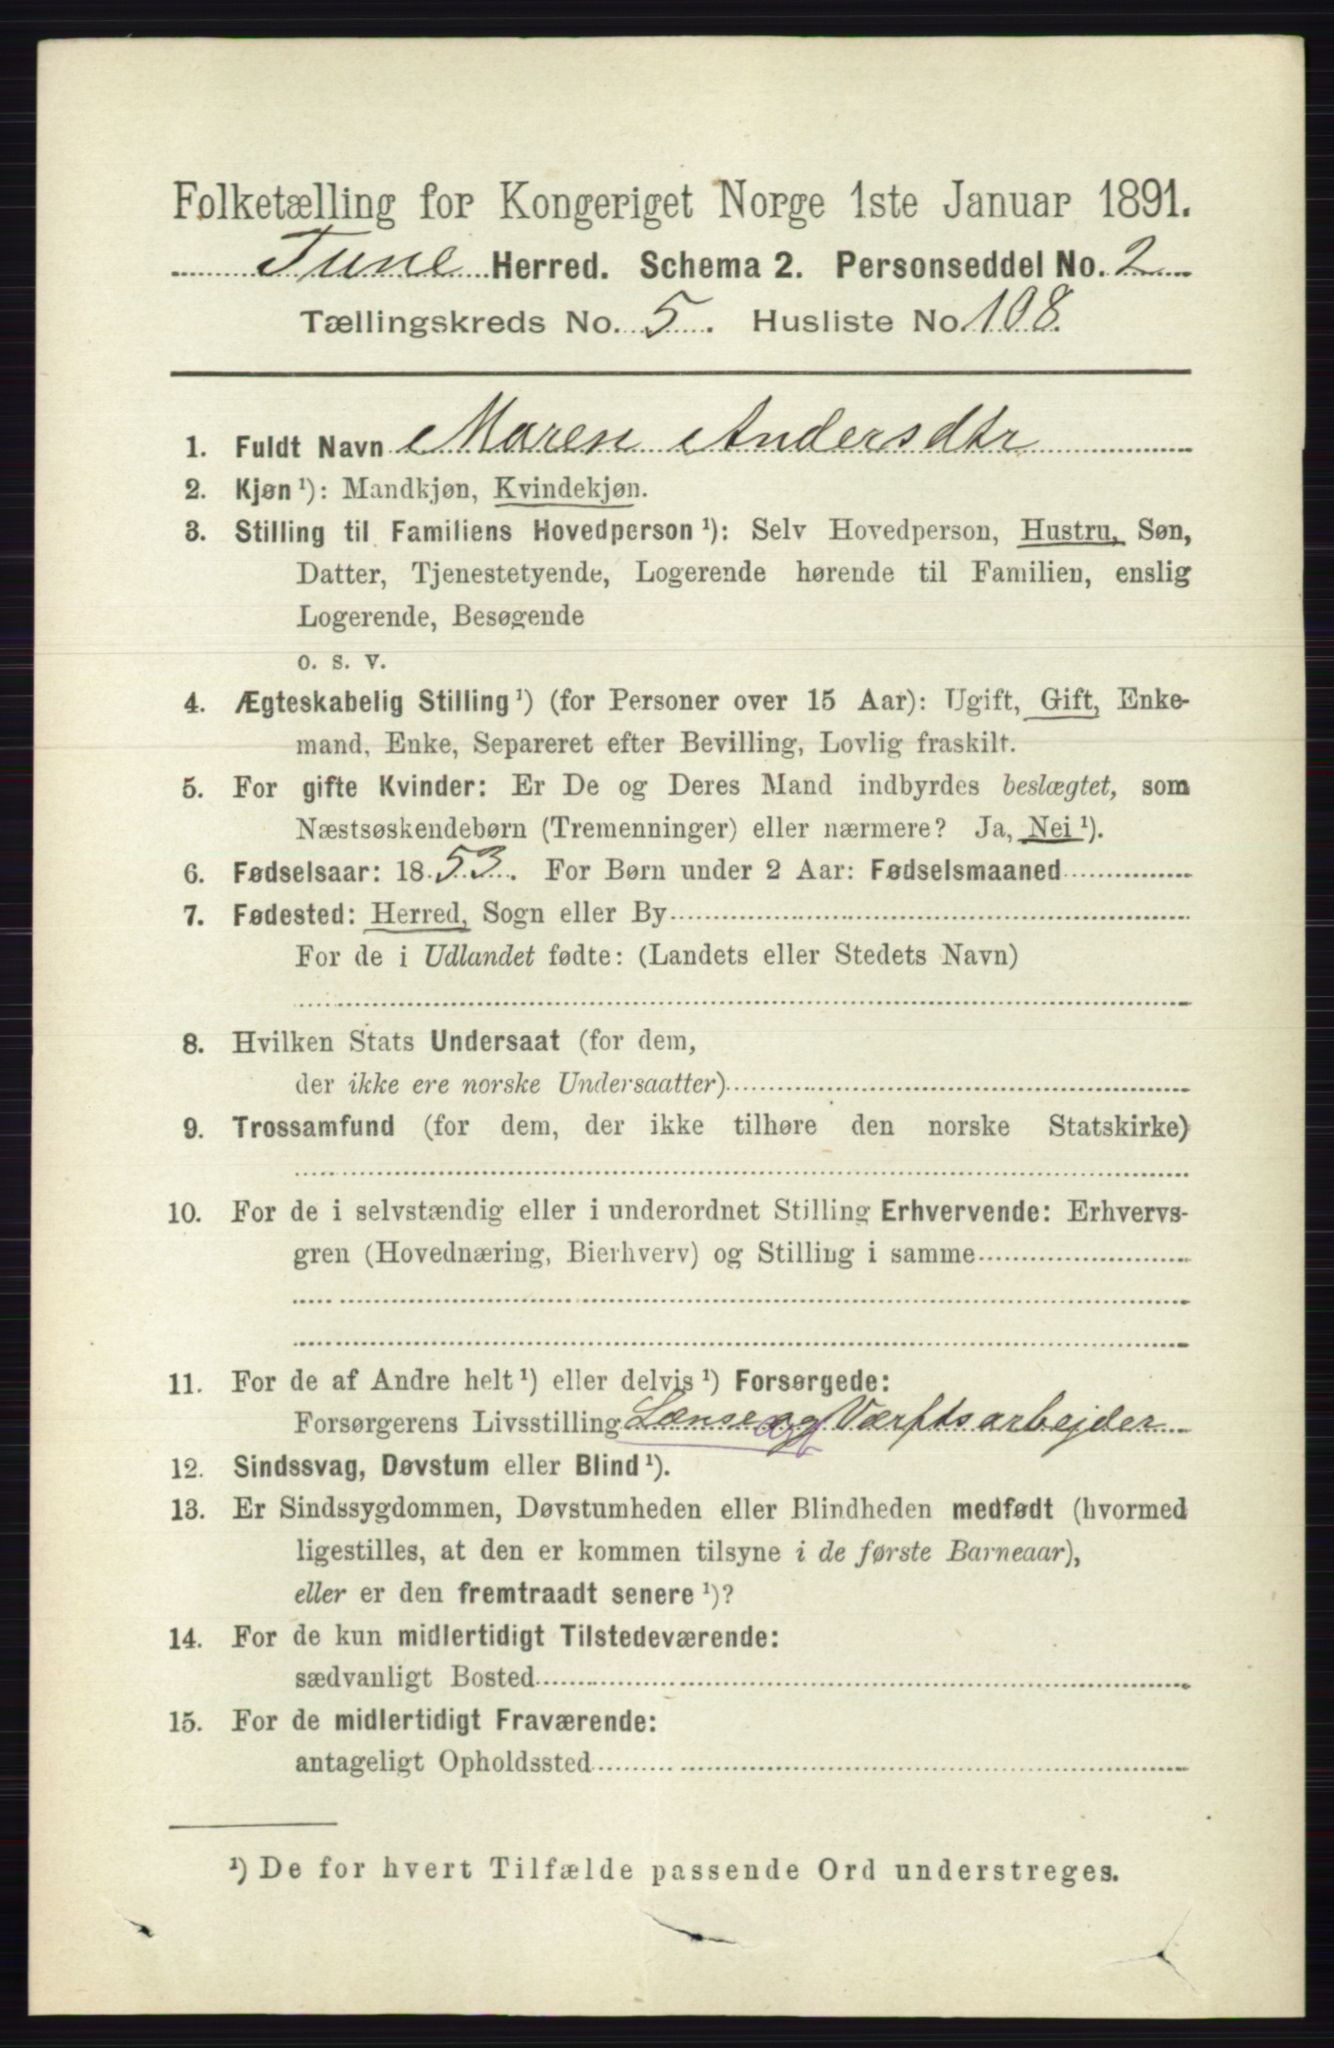 Folketælling for Kongeriget Norge 1ste Januar 1891.
Tune Herred. Schema 2. Personseddel No. 2
Tællingskreds No. 5. Husliste No. 108.
1. Fuldt Navn Maren Andersdtr
2. Kjøn ¹): Mandkjøn, Kvindekjøn.
3. Stilling til Familiens Hovedperson ¹): Selv Hovedperson, Hustru, Søn,
Datter, Tjenestetyende, Logerende hørende til Familien, enslig
Logerende, Besøgende
o. s. v.
4. Ægteskabelig Stilling ¹) (for Personer over 15 Aar): Ugift, Gift, Enke-
mand, Enke, Separeret efter Bevilling, Lovlig fraskilt.
5. For gifte Kvinder: Er De og Deres Mand indbyrdes beslægtet, som
Næstsøskendebørn (Tremenninger) eller nærmere? Ja, Nei ¹).
6. Fødselsaar: 1853. For Børn under 2 Aar: Fødselsmaaned
7. Fødested: Herred, Sogn eller By
For de i Udlandet fødte: (Landets eller Stedets Navn)
8. Hvilken Stats Undersaat (for dem,
der ikke ere norske Undersaatter)
9. Trossamfund (for dem, der ikke tilhøre den norske Statskirke)
10. For de i selvstændig eller i underordnet Stilling Erhvervende: Erhvervs-
gren (Hovednæring, Bierhverv) og Stilling i samme
11. For de af Andre helt ¹) eller delvis ¹) Forsørgede:
Forsørgerens Livsstilling Lænse og Værftsarbejder
12. Sindssvag, Døvstum eller Blind ¹).
13. Er Sindssygdommen, Døvstumheden eller Blindheden medfødt (hvormed
ligestilles, at den er kommen tilsyne i de første Barneaar),
eller er den fremtraadt senere ¹)?
14. For de kun midlertidigt Tilstedeværende:
sædvanligt Bosted
15. For de midlertidigt Fraværende:
antageligt Opholdssted
¹) De for hvert Tilfælde passende Ord understreges.